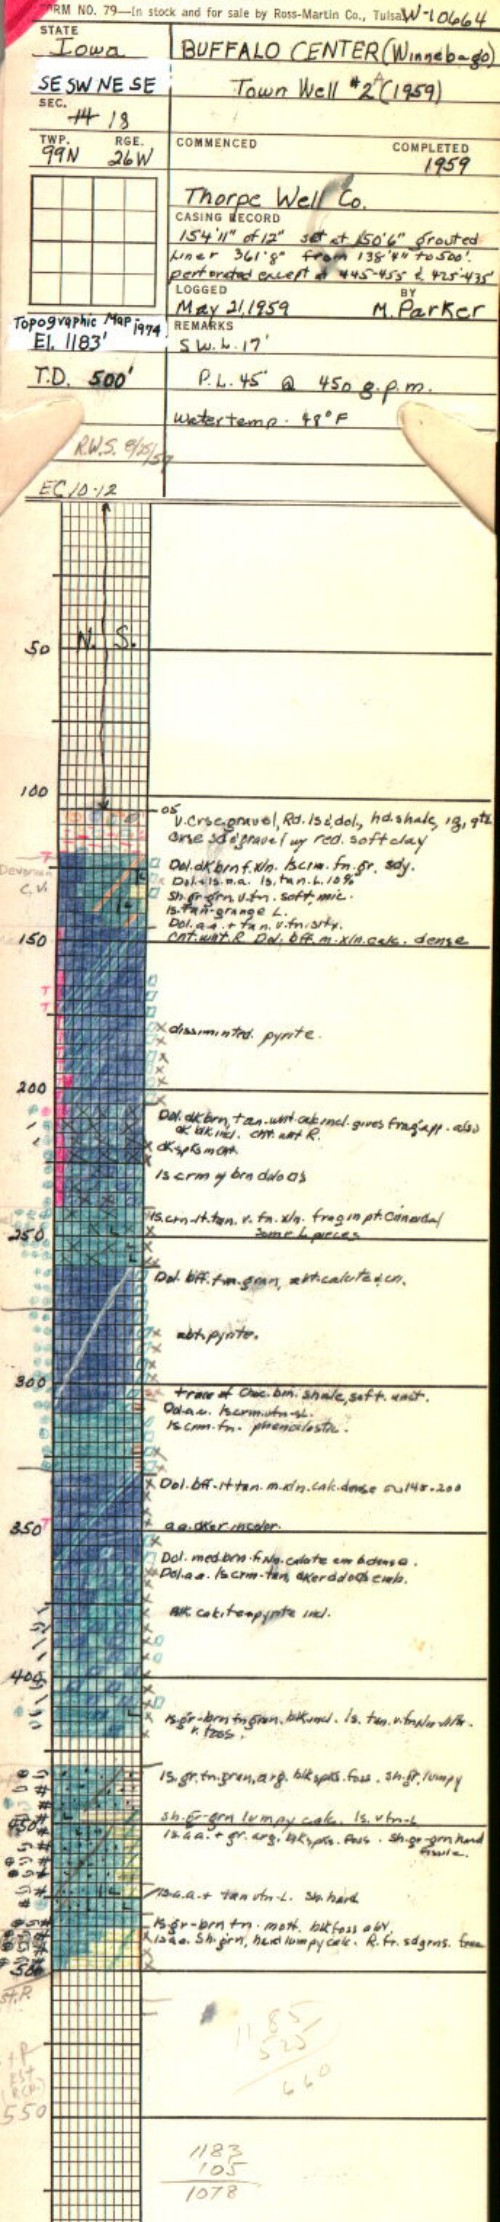 FORM NO. 79—In stock and for sale by Ross-Martin Co., Tulsa W-10664
STATE
Iowa
BUFFALO CENTER (Winnebago)
SE SW NE SE
Town Well #2 (1959)
SEC.
14 18
TWP. RGE.
99N 26W
COMMENCED
COMPLETED
1959
Thorpe Well Co.
CASING RECORD
154'11" of 12" set at 150'6" grouted
Liner 361'8" from 138'4" to 500'.
perforated except at 445-455 & 425-435'
LOGGED BY
May 21, 1959 M. Parker
Topographic Map 1974
El. 1183'
REMARKS
S.W.L. 17'
T.D. 500'
P.L. 45' @ 450 g.p.m.
Water temp. 48°F
R.W.S.
EC 10-12
N. S.
50
100
05
V. crse gravel, Rd. ls & dol, hd. shale, ig, qtz
crse sd & gravel w/ red. soft clay
Devonian
C.V.
Dol. dk brn f. xln. ls crm. fn. gr. sdy.
Dol. & ls. a.a. ls. tan. L. 10%
Sh. gr-grn v. fn. soft. mic.
ls. tan-orange L.
Dol. a.a. + tan. v. fn. slty.
150
Cht. wht. R. Dol. bff. m. xln. calc. dense
T
T
disseminted. pyrite.
200
Dol. dk brn, tan. wht calc incl. gives frag app. also
dk blk incl. cht. wht R.
dk spks in cht.
ls crm w/ brn dolo
ls. crm-lt. tan. v. fn. xln. frag in pt.
some L pieces
250
Dol. bff. f-m. gran, abt. calcite
abt. pyrite.
300
trace of choc. brn. shale, soft.
Dol. a.a. ls crm. v. fn-
ls crm. fn.
Dol. bff-lt tan. m. xln. calc. dense 145-200
350
T
a.a. dker in color.
Dol. med brn f. xln. calcite
Dol. a.a. ls crm-tan,
Blk calcite & pyrite incl.
400
ls. gr-brn fn gran. blk incl. ls. tan. v. fn
v. foss.
ls. gr. fn. gran, arg. blk spks. foss. sh. gr. lumpy
450
sh. gr-grn lumpy calc. ls. v fn-L
ls. a.a. + gr. arg. blk spks. foss. sh. gr-grn hard
fissile.
ls. a.a. + tan v fn-L. Sh. hard
ls. gr-brn fn. mott. blk foss abv.
ls aa. Sh. grn, hard lumpy calc. R. fr. sd grns. free
500
St. P.
1185
525
660
EST
550
1183
105
1078